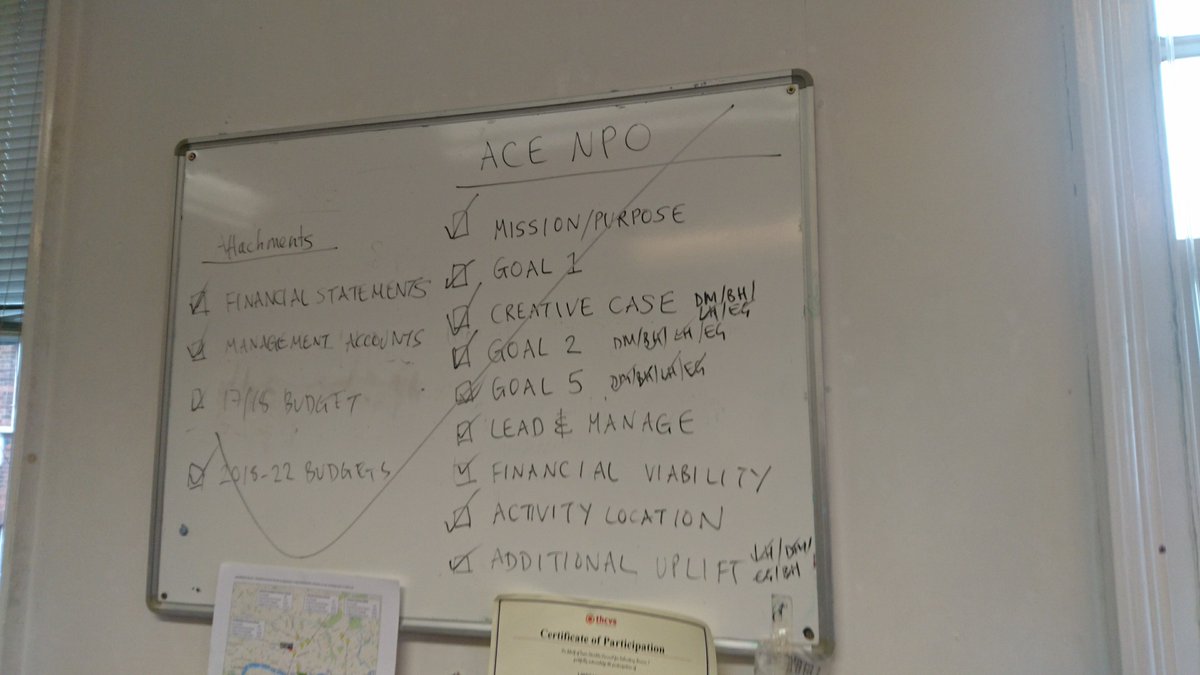 ACE NPO
Attachments
FINANCIAL STATEMENTS
MANAGEMENT ACCOUNTS
17/18 BUDGET
2018-22 BUDGETS
MISSION/PURPOSE
GOAL 1
CREATIVE CASE DM/BH/
LH/EG
GOAL 2 DM/BH/LH/EG
GOAL 5 DM/BH/LH/EG
LEAD & MANAGE
FINANCIAL VIABILITY
ACTIVITY LOCATION
ADDITIONAL UPLIFT LH/DM/
EG/BH
thcvs
Certificate of Participation